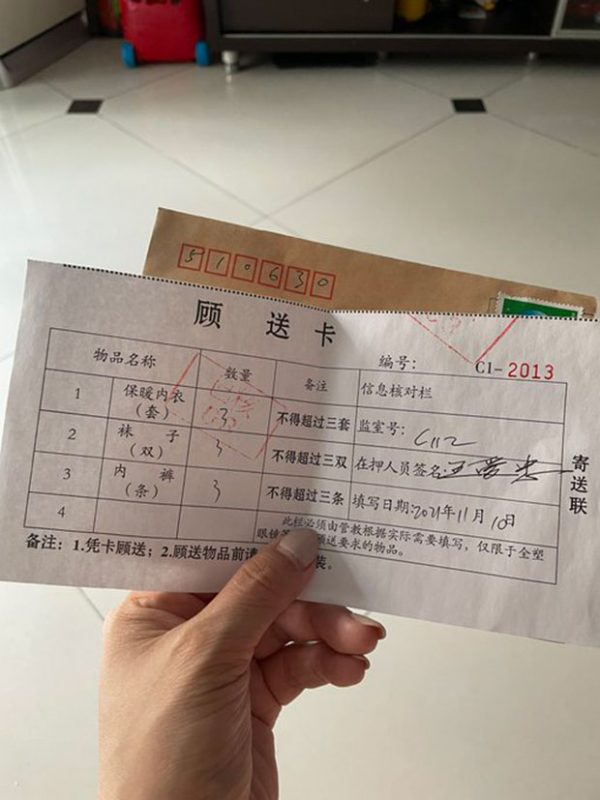 510630
顾 送 卡
编号： C1-2013
物品名称 数量 备注 信息核对栏
1 保暖内衣（套） 3 不得超过三套 监室号：C112
2 袜 子（双） 3 不得超过三双 在押人员签名：王
3 内 裤（条） 3 不得超过三条 填写日期：2021年11月10日
4 此栏必须由管教根据实际需要填写，仅限于全塑
眼镜 顾送要求的物品。
备注：1.凭卡顾送；2.顾送物品前请 装。
寄送联